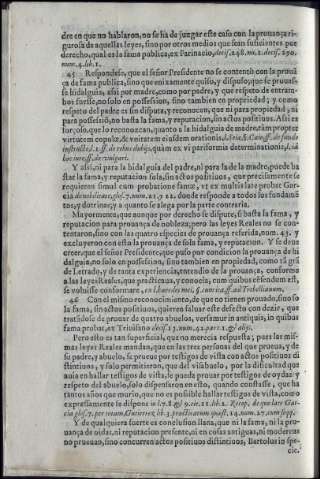 dre en que no hablaron, no se ha de juzgar este caso con la prouança ri-
gurosa de aquellas leyes, sino por otros medios que sean suficientes por
derecho, qual es la fama publica, ex Farinacio, decis. 248. nu. 2. decis. 290.
num. 4. lib. 1.
45 Respondese, que el señor Presidente no se contentò con la proua
ça de fama publica, sino que enixamente quiso, y dispuso, que se prouas-
se hidalguia, assi por madre, como por padre, y que respeto de entram-
bos fuesse, no solo en possession, sino tambien en propriedad; y como
respeto del padre es sin disputa, y reconocen, que ni para propriedad, ni
para possessiõ, no basta la fama, y reputacion, sin actos positiuos. Assi es
forçoso, que lo reconozcan, quanto a la hidalguia de madre, tùm propter
virtutem copulæ, & vnitatem eiusdem orationis
Y assi, ni para la hidalguia del padre, ni para la de la madre, puede ba
star la fama, y reputacion sola, sin actos positiuos, que precisamente se
requieren simul cum probatione famæ, vt ex multis late probat Gar-
cia de nobilitate, glos. 7. num. 21. y 22. donde responde a todos los fundamẽ
tos, y doctrinas, y a quanto se alega por la parte contraria.
Mayormente, que aunque por derecho se dispute, si basta la fama, y
reputacion para prouança de nobleza; pero las leyes Reales no se con-
tentaron, sino con las quatro especies de prouança referida, num. 43. y
excluyeron con esto la prouança de sola fama, y reputacion. Y se deue
creer, que el señor Presidente, que puso por condicion la prouança de hi
dalguia, no solo en possession, sino tambien en propriedad, como tã gra
de Letrado, y de tanta experiencia, entendio de la prouança, conforme
a las leyes Reales, que practicaua, y conocia, cum quibus cẽsendum est,
se voluisse conformare,
46 Con el mismo reconocimiento, de que no tienen prouado, sino so
la fama, sin actos positiuos, quieren saluar este defecto con dezir, que
tratandose de prouar de quatro abuelos, versamur in antiquis, in quibus
fama probat, ex Triuisano decis. 13. num. 42. part. 1. & alijs.
Pero esto es tan superficial, que no merecia respuesta; pues las mis-
mas leyes Reales mandan, que en las tres personas del que prueua, y de
su padre, y abuelo, se prueue por testigos de vista con actos positiuos di
stintiuos, y solo permitieron, que del visabuelo, por la dificultad que
auia en hallar testigos de vista, se pueda prouar por testigos de oydas: y
respeto del abuelo, solo dispensaron en esto, quando constasse, que ha
tantos años que murio, que no es possible hallar testigos de vista, como
expressamente se dispone
Y de qualquiera suerte es conclusion llana, que ni la fama, ni la pro-
uança de oidas, ni reputacion presente, ni en cosas antiguas, ni modernas
no prueuan, sino concurren actos positiuos distintiuos, Bartolus in spe-
cie.